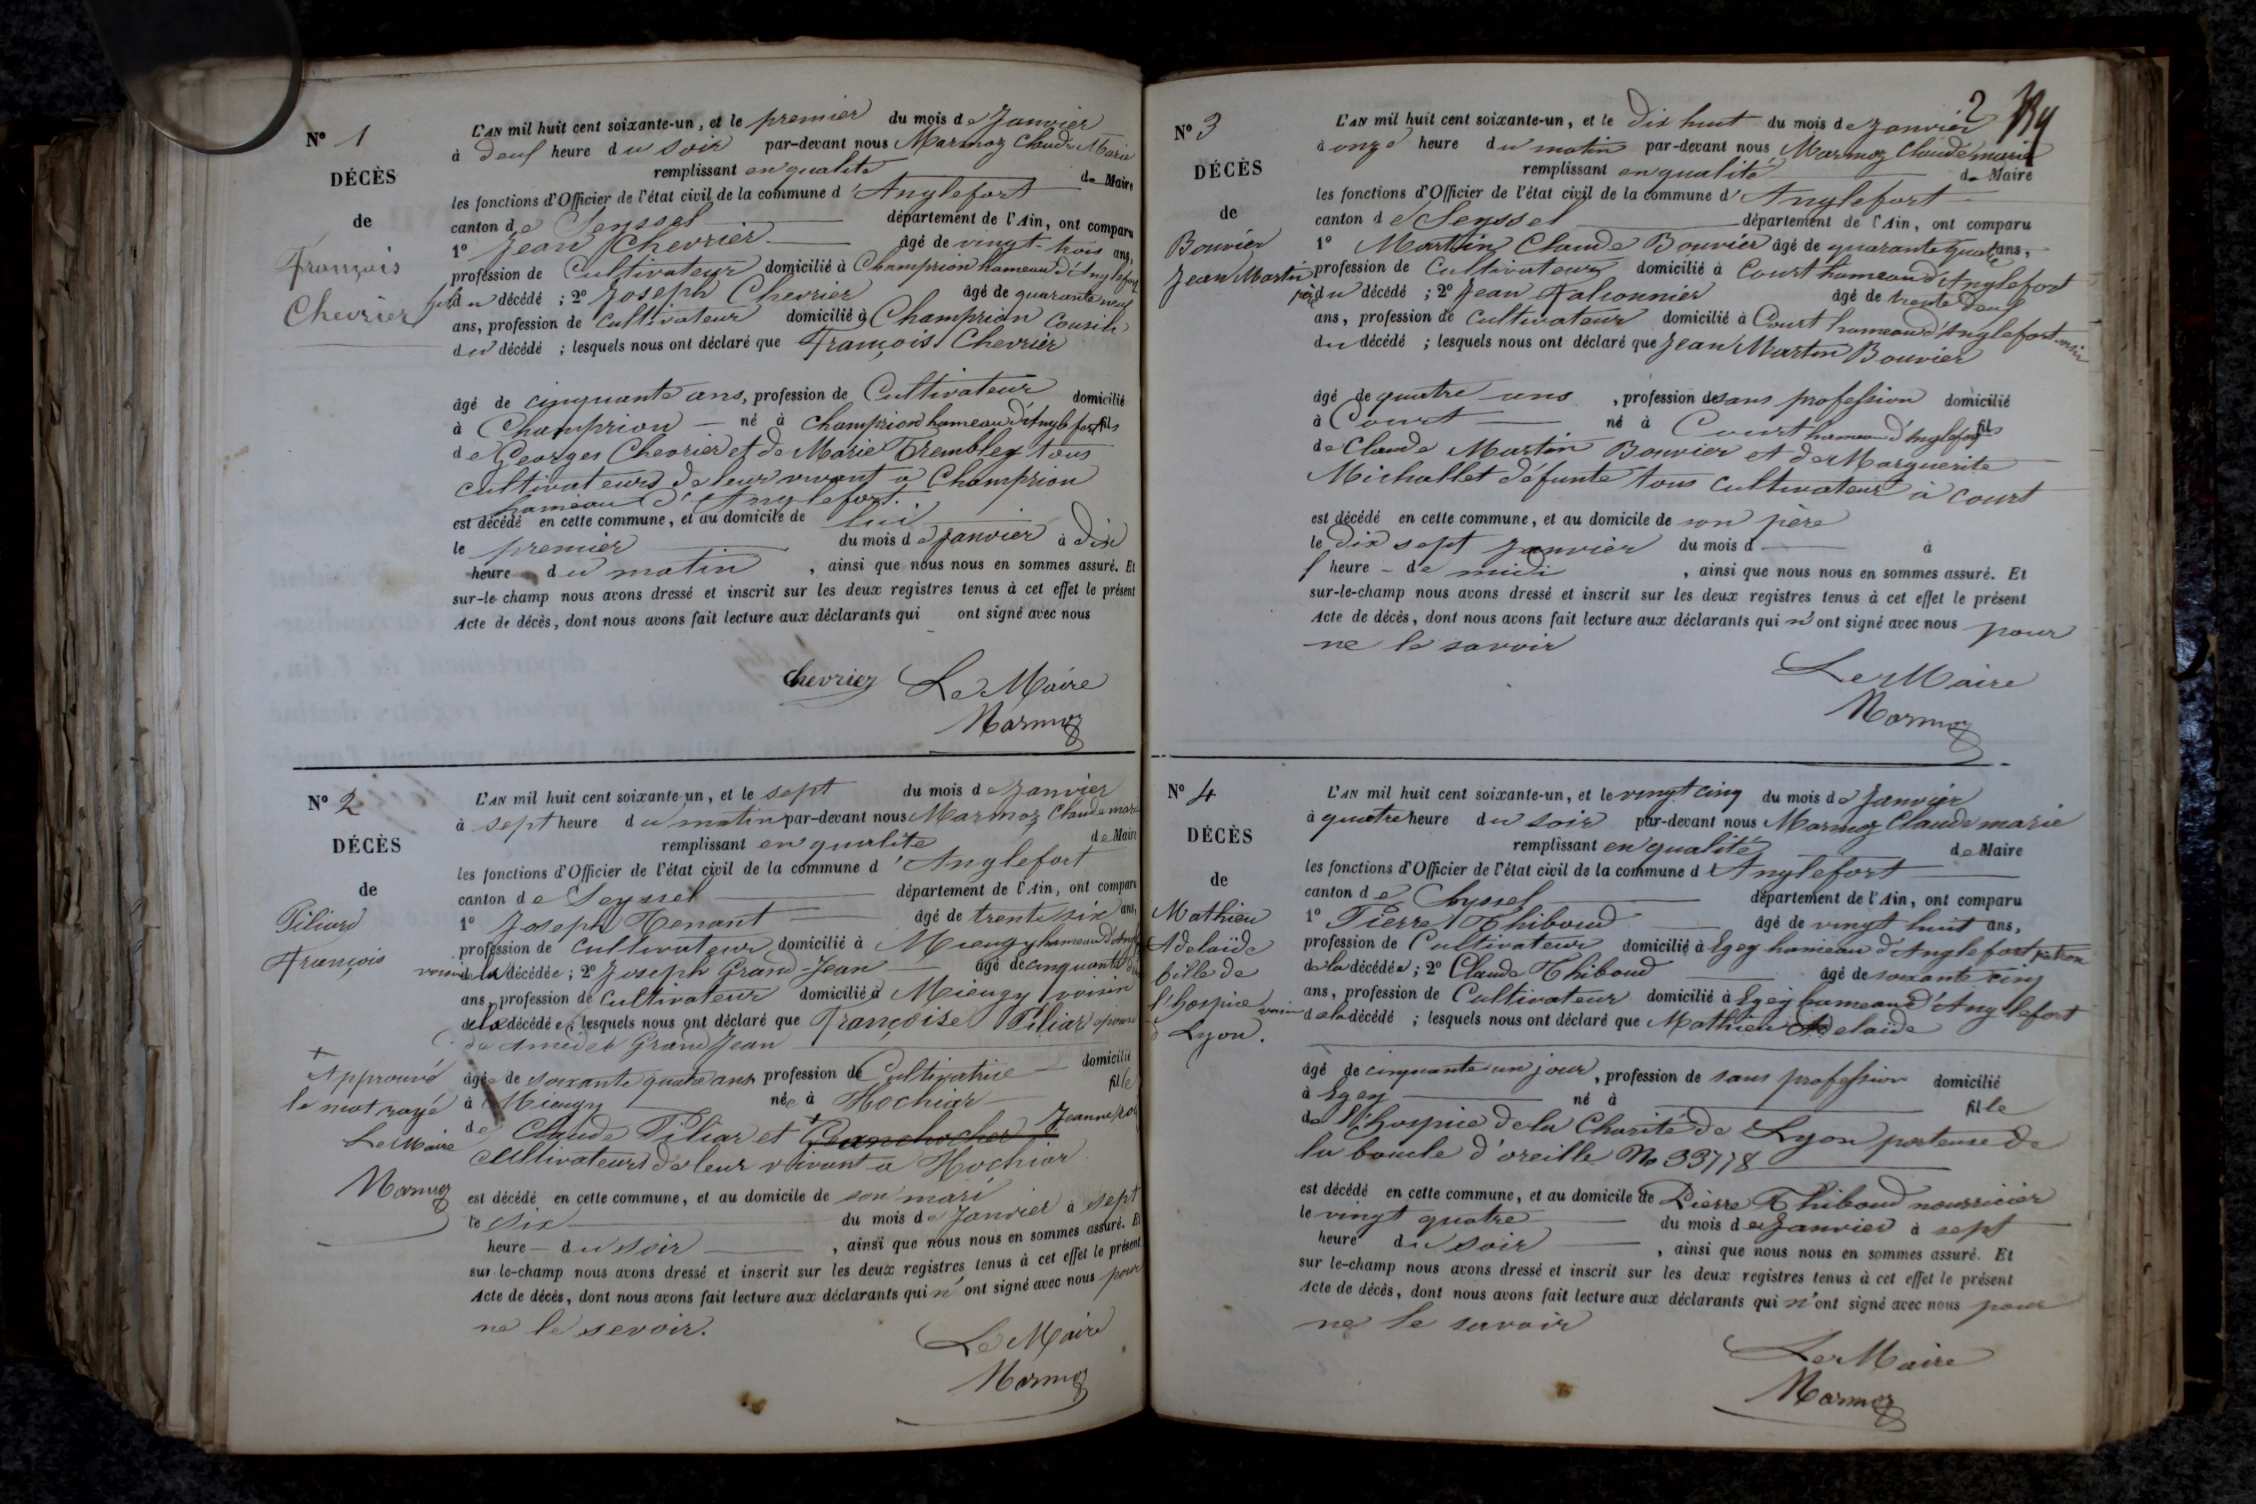 N° 1
DÉCÈS
de
François
Chevrier
L'AN mil huit cent soixante-un, et le premier du mois de Janvier
à deux heure du soir par-devant nous Marmoz Claude Marie
remplissant en qualité de Maire
les fonctions d'Officier de l'état civil de la commune d'Anglefort
canton de Seyssel département de l'Ain, ont comparu
1° Jean Chevrier âgé de vingt-trois ans,
profession de Cultivateur domicilié à Champrion hameau d'Anglefort
fils du décédé ; 2° Joseph Chevrier âgé de quarante neuf
ans, profession de cultivateur domicilié à Champrion cousin
du décédé ; lesquels nous ont déclaré que François Chevrier
âgé de cinquante ans, profession de Cultivateur domicilié
à Champrion né à Champrion hameau d'Anglefort fils
de Georges Chevrier et de Marie Trembley tous
cultivateurs de leur vivant à Champrion
hameau d'Anglefort.
est décédé en cette commune, et au domicile de lui
le premier du mois de Janvier à dix
heure du matin, ainsi que nous nous en sommes assuré. Et
sur-le-champ nous avons dressé et inscrit sur les deux registres tenus à cet effet le présent
Acte de décès, dont nous avons fait lecture aux déclarants qui ont signé avec nous
Chevrier Le Maire
Marmoz
N° 2
DÉCÈS
de
Piliard
François
+
Approuvé
le mot rayé
Le Maire
Marmoz
L'AN mil huit cent soixante-un, et le sept du mois de Janvier
à sept heure du matin par-devant nous Marmoz Claude marie
remplissant en qualité de Maire
les fonctions d'Officier de l'état civil de la commune d'Anglefort
canton de Seyssel département de l'Ain, ont comparu
1° Joseph Henant âgé de trente six ans,
profession de cultivateur domicilié à Mieugy hameau d'Angl
voisin de la décédée ; 2° Joseph Grand-Jean âgé de cinquante
ans, profession de Cultivateur domicilié à Mieugy voisin
de la décédée ; lesquels nous ont déclaré que Françoise Piliar épouse
de Amédée Grand Jean
âgée de soixante quatre ans profession de Cultivatrice domicilié
à Mieugy née à Hochiar fille
de Claude Piliar et + Jeanne
cultivateurs de leur vivant à Hochiar
est décédé en cette commune, et au domicile de son mari
le six du mois de Janvier à sept
heure du soir, ainsi que nous nous en sommes assuré. Et
sur le-champ nous avons dressé et inscrit sur les deux registres tenus à cet effet le présent
Acte de décès, dont nous avons fait lecture aux déclarants qui n'ont signé avec nous pour
ne le sevoir.
Le Maire
Marmoz
2
N° 3
DÉCÈS
de
Bouvier
Jean Martin
L'AN mil huit cent soixante-un, et le dix huit du mois de Janvier
à onze heure du matin par-devant nous Marmoz Claude marie
remplissant en qualité de Maire
les fonctions d'Officier de l'état civil de la commune d'Anglefort
canton de Seyssel département de l'Ain, ont comparu
1° Martin Claude Bouvier âgé de quarante quatre ans,
profession de Cultivateur domicilié à Court hameau d'Anglefort
père du décédé ; 2° Jean Falconnier âgé de trente deux
ans, profession de cultivateur domicilié à Court hameau d'Anglefort voisin
du décédé ; lesquels nous ont déclaré que Jean Martin Bouvier
âgé de quatre ans, profession de sans profession domicilié
à Court né à Court hameau d'Anglefort fils
de Claude Martin Bouvier et de Marguerite
Michallet défunte tous cultivateur à court
est décédé en cette commune, et au domicile de son père
le dix sept Janvier du mois d à
heure de midi, ainsi que nous nous en sommes assuré. Et
sur-le-champ nous avons dressé et inscrit sur les deux registres tenus à cet effet le présent
Acte de décès, dont nous avons fait lecture aux déclarants qui n'ont signé avec nous pour
ne le savoir
Le Maire
Marmoz
N° 4
DÉCÈS
de
Mathieu
Adelaïde
fille de
l'hospice
d Lyon.
L'AN mil huit cent soixante-un, et le vingt cinq du mois de Janvier
à quatre heure du soir par-devant nous Marmoz Claude marie
remplissant en qualité de Maire
les fonctions d'Officier de l'état civil de la commune d'Anglefort
canton de Seyssel département de l'Ain, ont comparu
1° Pierre Thiboud âgé de vingt huit ans,
profession de Cultivateur domicilié à Egey hameau d'Anglefort patron
de la décédée ; 2° Claude Thiboud âgé de soixante cinq
ans, profession de Cultivateur domicilié à Egey hameau d'Anglefort
voisin de la décédé ; lesquels nous ont déclaré que Mathieu Adelaïde
âgé de cinquante un jour, profession de sans profession domicilié
à Egey né à fille
de l'hospice de la Charité de Lyon porteuse de
la boucle d'oreille No 33778
est décédé en cette commune, et au domicile de Pierre Thiboud nourricier
le vingt quatre du mois de Janvier à sept
heure du soir, ainsi que nous nous en sommes assuré. Et
sur le-champ nous avons dressé et inscrit sur les deux registres tenus à cet effet le présent
Acte de décès, dont nous avons fait lecture aux déclarants qui n'ont signé avec nous pour
ne le savoir
Le Maire
Marmoz